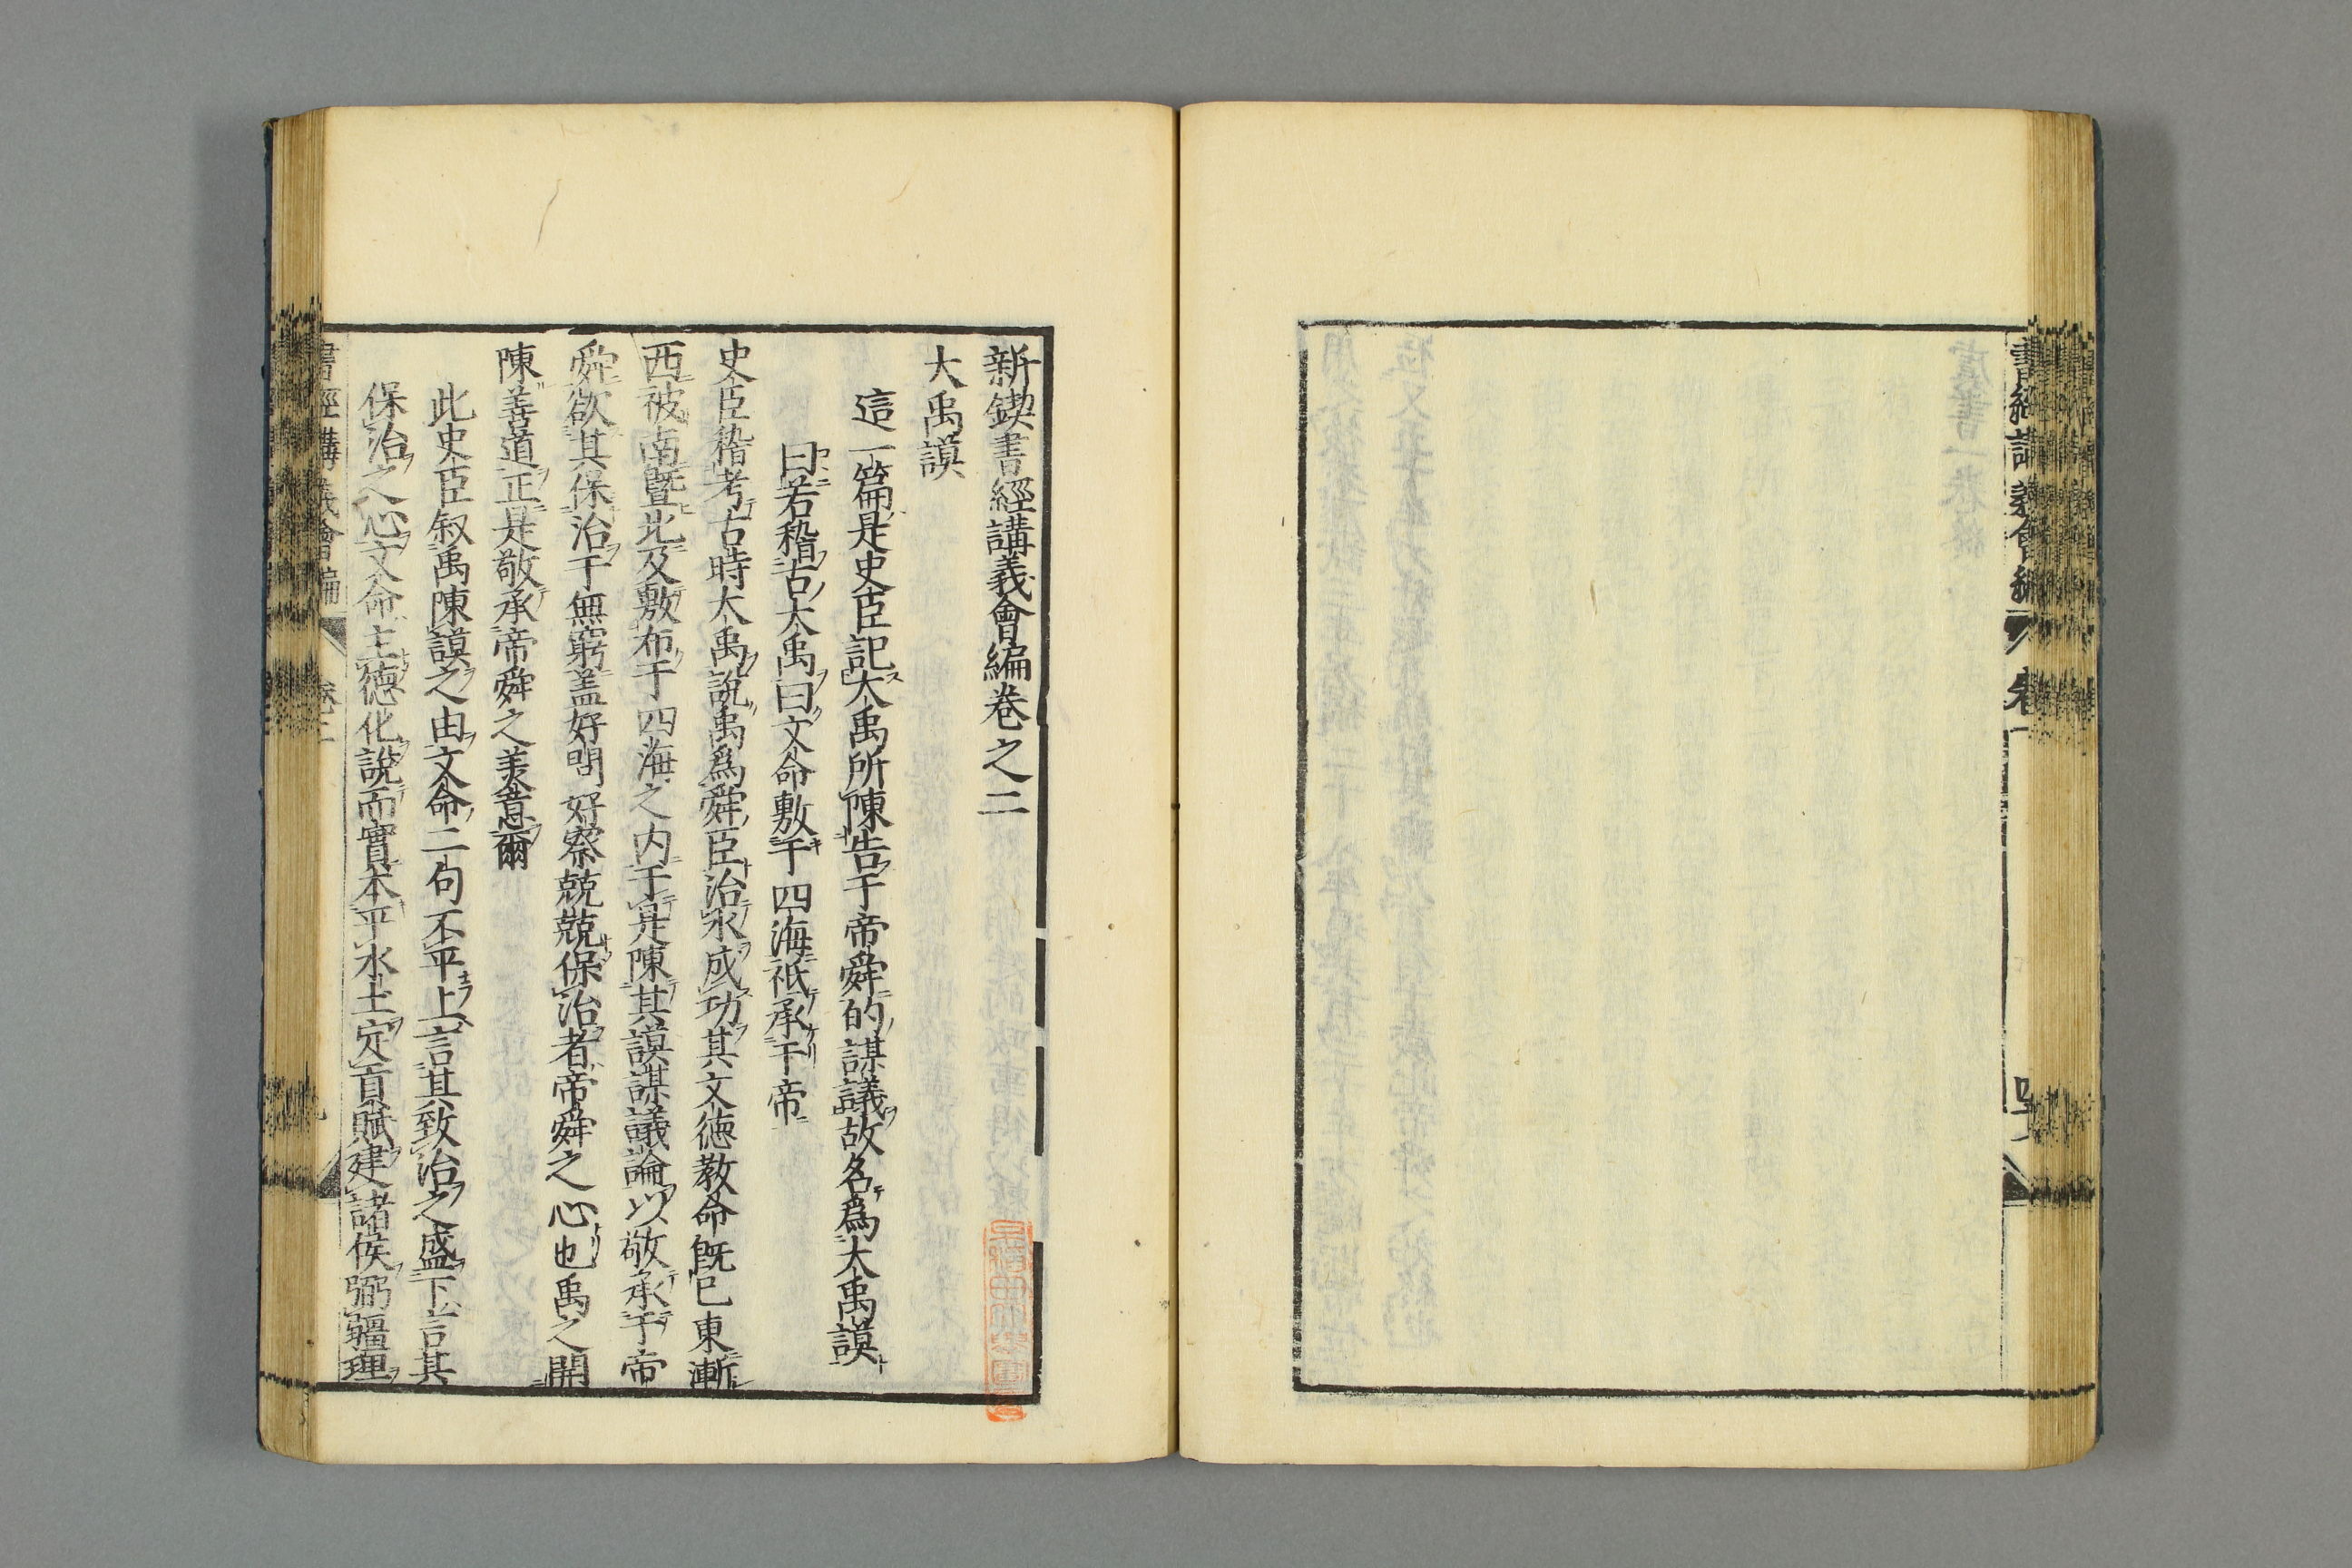 書經講義會編
卷一
新鍥書經講義會編卷之二
大禹謨
這一篇是史臣記大禹所陳告于帝舜的謀議故名爲大禹謨
曰若稽古大禹曰文命敷于四海祗承于帝
史臣稽考古時大禹說禹爲舜臣治水成功其文德教命旣已東漸
西被南曁北及敷布于四海之内于是陳其謨謀議論以敬承于帝
舜欲其保治于無窮盖好問好察兢兢保治者帝舜之心也禹之開
陳善道正是敬承帝舜之美意爾
此史臣叙禹陳謨之由文命二句不平上言其致治之盛下言其
保治之心文命主德化說而實本平水土定貢賦建諸侯弼疆理
書經講義會編
卷二